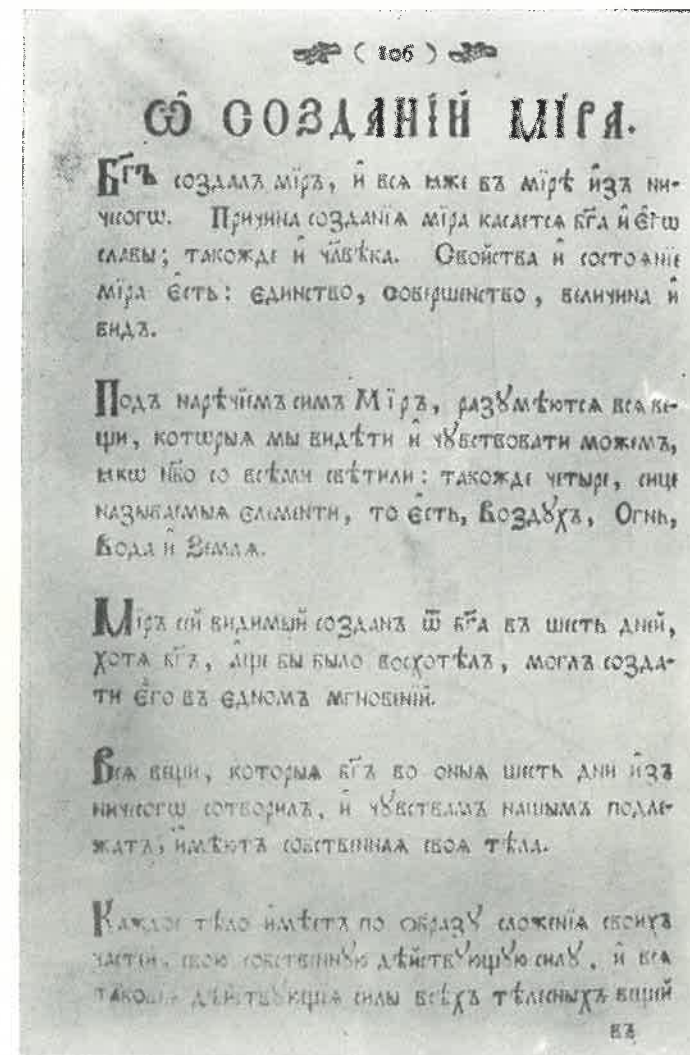 ( 106 )
Ѽ СОЗДАНЇИ МЇРА.
Бг҃ъ создалъ мїръ, и҆ вся ꙗже въ мїрѣ и҆зъ ни-
чесогѡ. Причина созданїѧ мїра касаетсѧ бг҃а и҆ єгѡ̀
славы; такожде и҆ чл҃вѣка. Свойства и҆ состоѧнїе
мїра є҆сть: єдинство, совершенство, величина и҆
видъ.
Подъ нарѣчїемъ симъ Мїръ, разꙋмѣютсѧ всѧ ве-
щи, котѡрыѧ мы видѣти и҆ чꙋвствовати можемъ,
ꙗкѡ нб҃о со всѣми свѣтили: такожде четыре, сице
называемыѧ єлементи, то є҆сть, Воздꙋхъ, Огнь,
Вода и҆ Землѧ.
Мїръ сей видимый созданъ ѿ бг҃а въ шесть дней,
хотѧ бг҃ъ, а҆ще бы было восхотѣлъ, моглъ созда-
ти є҆го въ єдномъ мгновенїй.
Всѧ вещи, которыѧ бг҃ъ во оныѧ шесть дни и҆зъ
ничесогѡ сотворилъ, и҆ чꙋвствамъ нашымъ подле-
жатъ, и҆мѣютъ собственнаѧ своѧ тѣла.
Каждое тѣло и҆мѣетъ по образꙋ сложенїѧ своихъ
частей, свою собственнꙋю дѣйствꙋющꙋю силꙋ, и҆ всѧ
таковаѧ дѣйствꙋющїѧ силы всѣхъ тѣлесныхъ вещий
въ